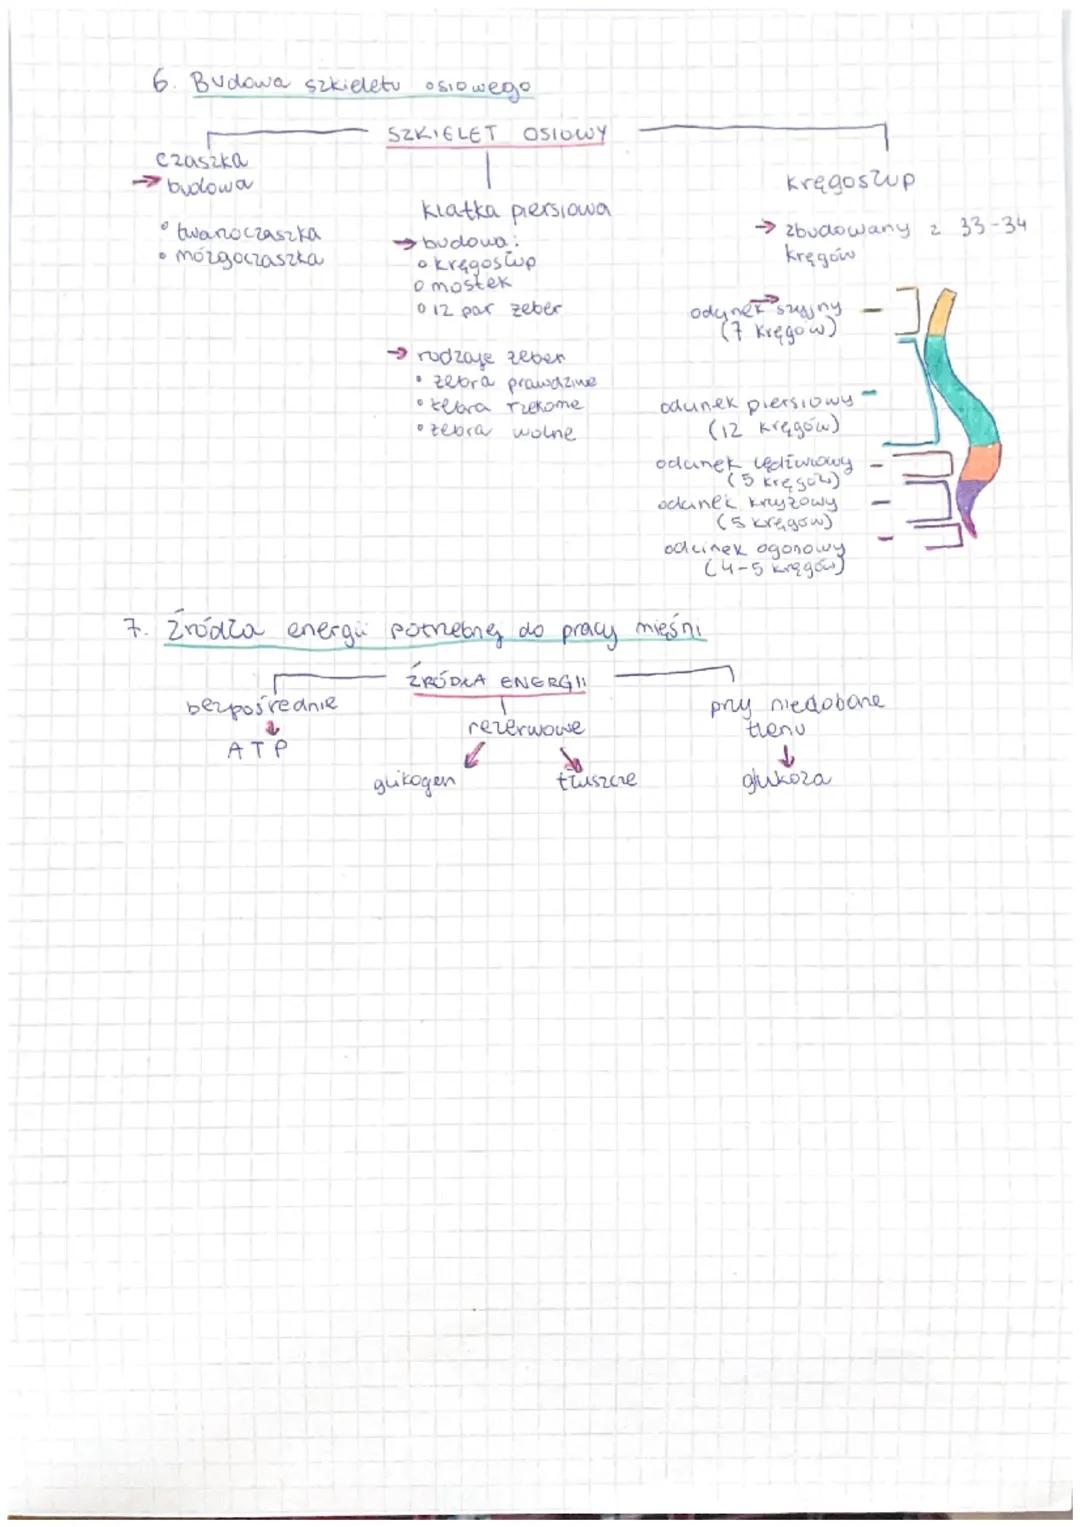 6. Budowa szkieletu osiowego
SZKIELET OSIOWY
czaszka
→ budowa
• twarzoczaszka
• mózgoczaszka
klatka piersiowa
→ budowa:
• kręgosłup
• mostek
• 12 par żeber
→ rodzaje żeber
• żebra prawdziwe
• żebra rzekome
• żebra wolne
kręgosłup
→ zbudowany z 33-34
kręgów
odcinek szyjny
(7 kręgów)
odcinek piersiowy
(12 kręgów)
odcinek lędźwiowy
(5 kręgów)
odcinek krzyżowy
(5 kręgów)
odcinek ogonowy
(4-5 kręgów)
7. Źródła energii potrzebnej do pracy mięśni
ŹRÓDŁA ENERGII
bezpośrednie
ATP
rezerwowe
glikogen tłuszcze
przy niedoborze
tlenu
glukoza